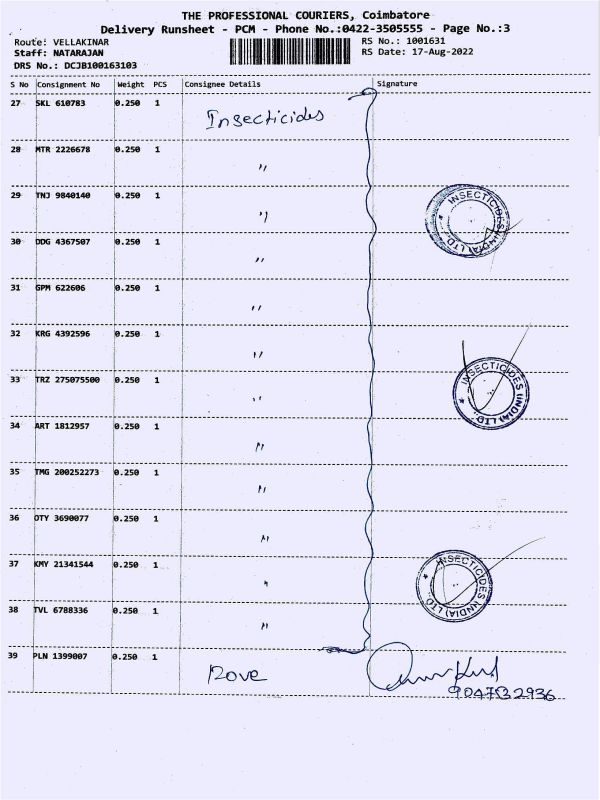 THE PROFESSIONAL COURIERS, Coimbatore
Delivery Runsheet - PCM - Phone No.:0422-3505555 - Page No.:3
Route: VELLAKINAR RS No.: 1001631
Staff: NATARAJAN RS Date: 17-Aug-2022
DRS No.: DCJB100163103
S No Consignment No Weight PCS Consignee Details Signature
27 SKL 610783 0.250 1 Insecticides
28 MTR 2226678 0.250 1 "
29 TNJ 9840140 0.250 1 "
INSECTICIDES (INDIA) LTD.
30 DDG 4367507 0.250 1 "
31 GPM 622606 0.250 1 "
32 KRG 4392596 0.250 1 "
33 TRZ 275075500 0.250 1 "
INSECTICIDES (INDIA) LTD.
34 ART 1812957 0.250 1 "
35 TMG 200252273 0.250 1 "
36 OTY 3690077 0.250 1 "
37 KMY 21341544 0.250 1 "
INSECTICIDES (INDIA) LTD.
38 TVL 6788336 0.250 1 "
39 PLN 1399007 0.250 1 Rove